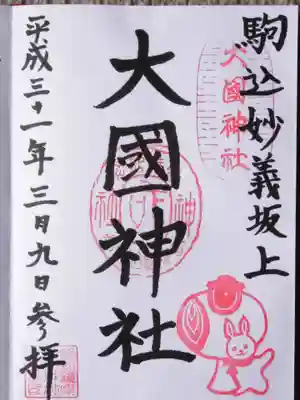 駒込妙義坂上
大國神社
大國神社
平成三十一年三月九日参拝